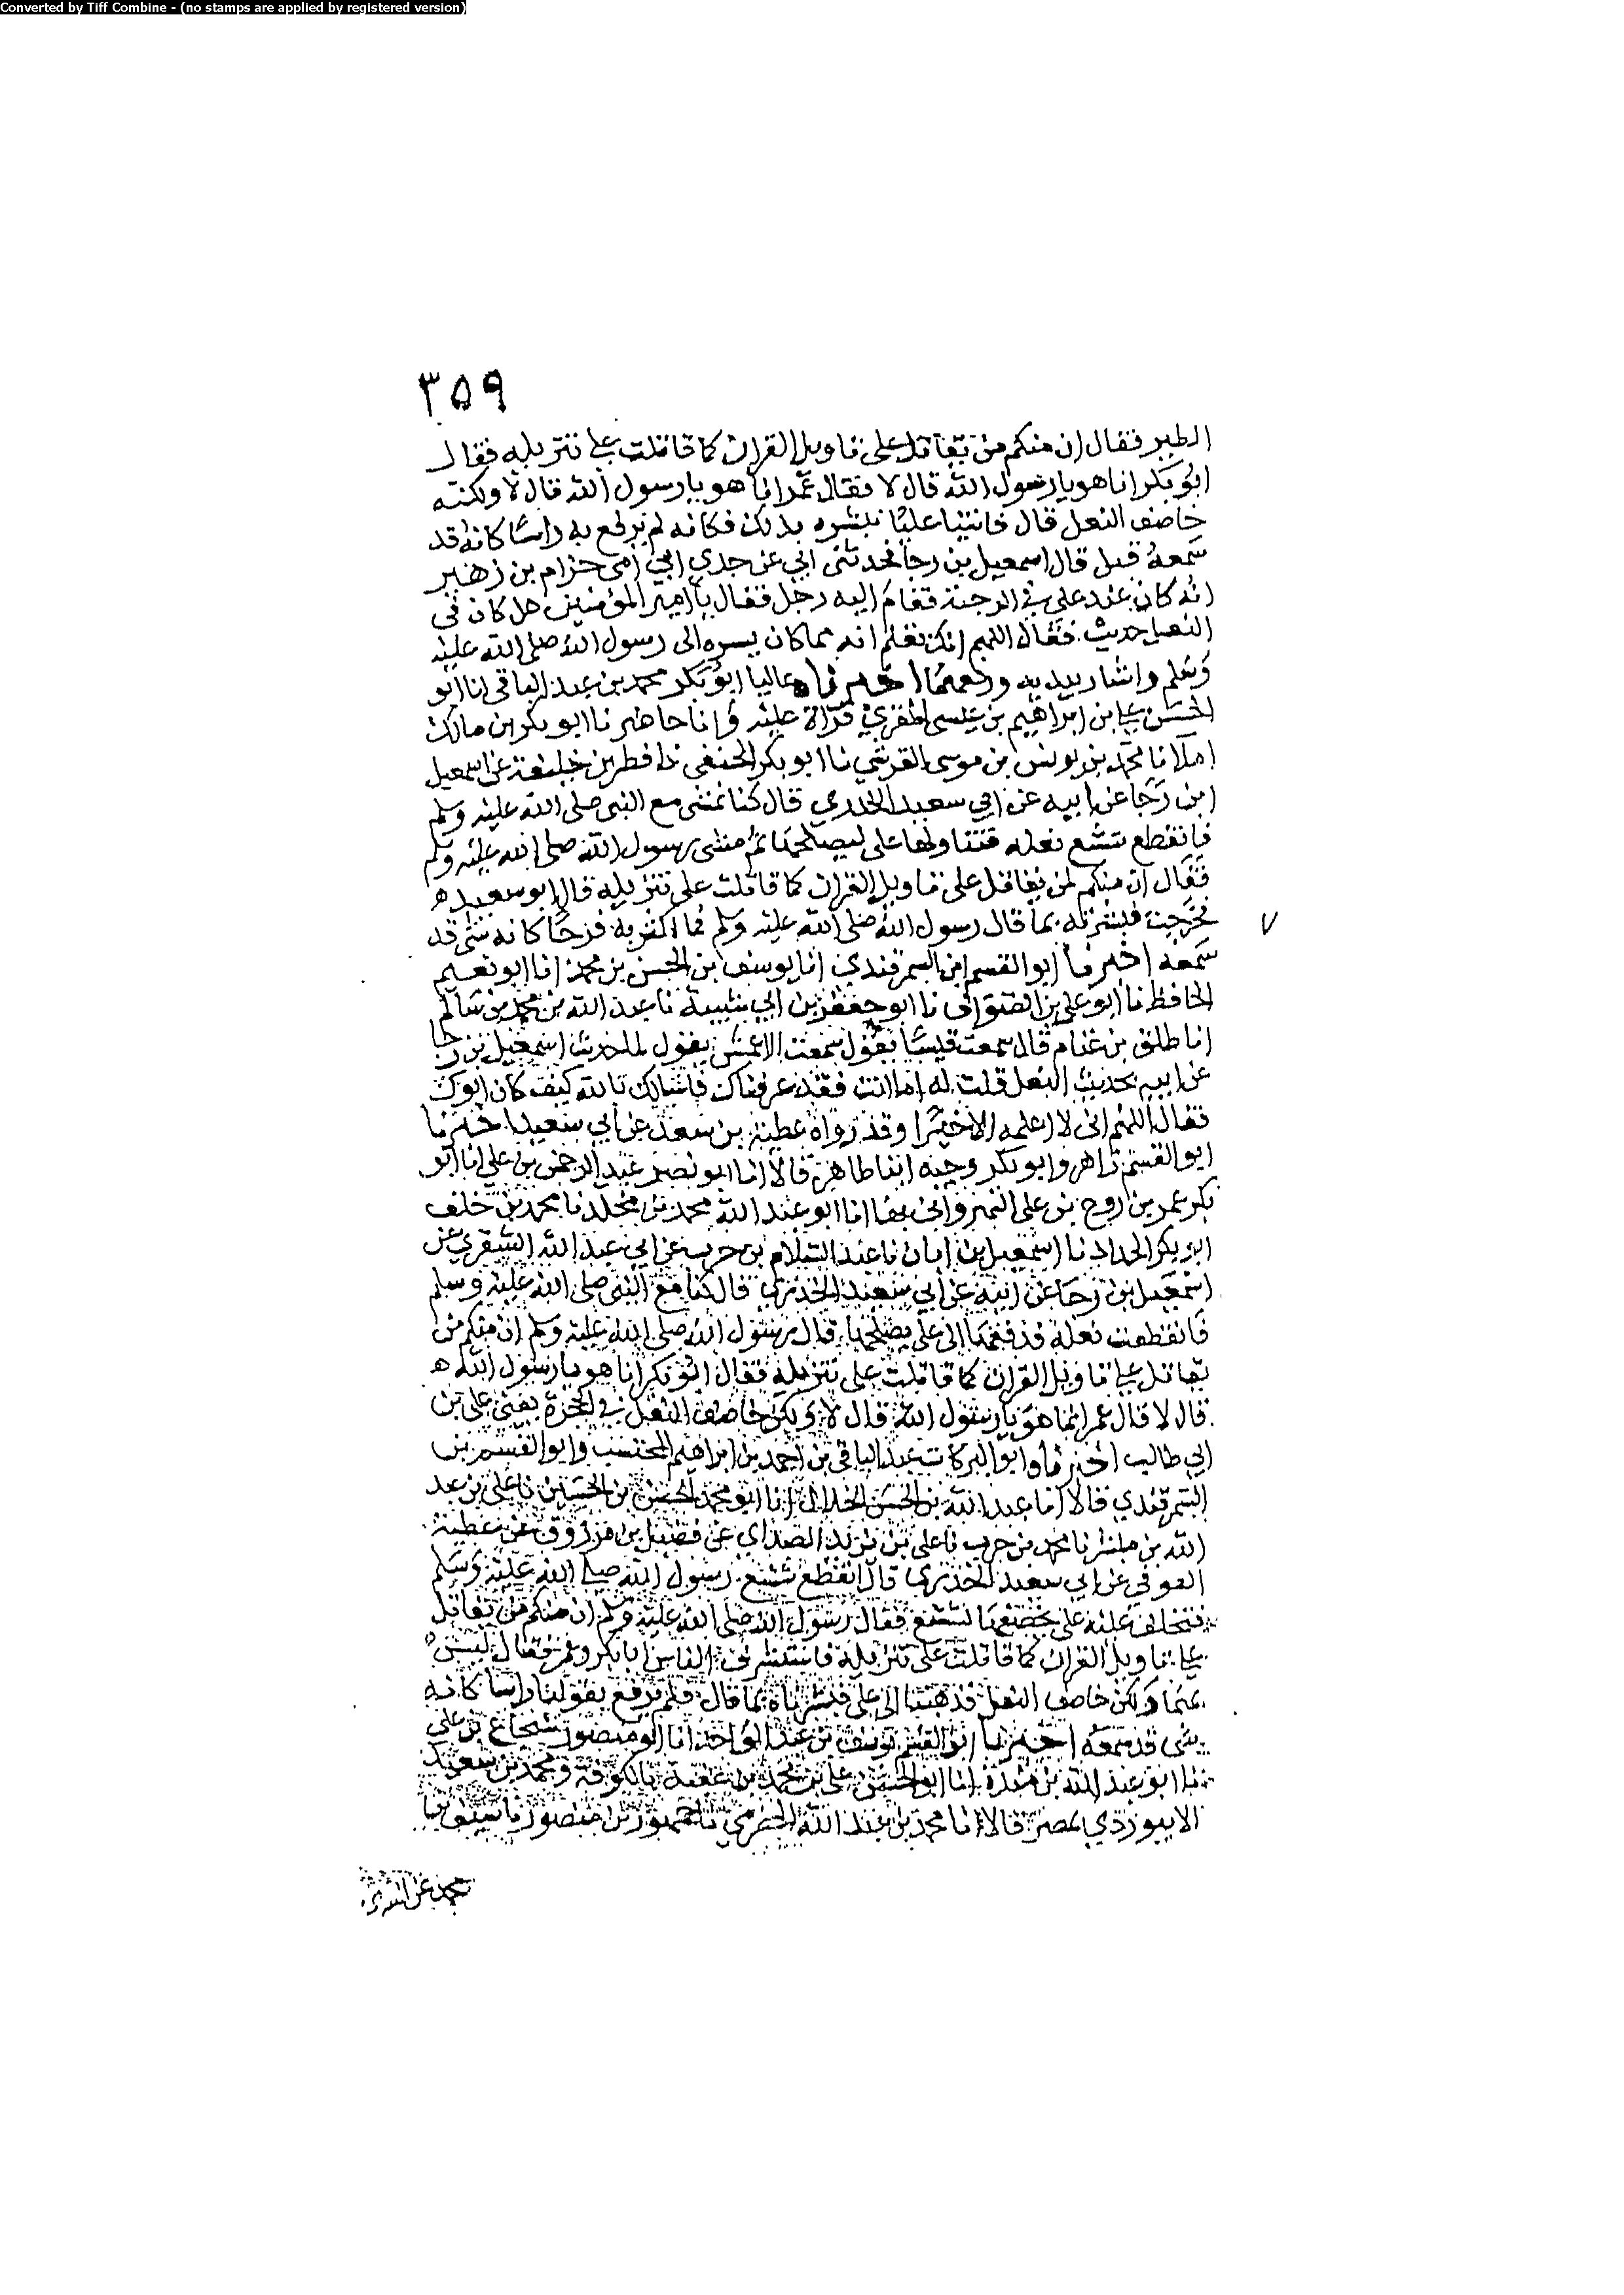 Converted by Tiff Combine - (no stamps are applied by registered version)
٣٥٩
الطير فقال ان منكم من يقاتل على تاويل القران كما قاتلت على تنزيله فقال
ابو بكر انا هو يا رسول الله قال لا فقال عمر انا هو يا رسول الله قال لا ولكنه
خاصف النعل قال فاتينا عليا نبشره بذلك فكانه لم يرفع به راسا كانه قد
سمعه قبل قال اسمعيل بن رجا فحدثنى ابي عن جدي ابي امي حزام بن زهير
انه كان عند علي في الرحبة فقام اليه رجل فقال يا امير المؤمنين هل كان في
النعل حديث فقال اللهم انك تعلم انه مما كان يسره الى رسول الله صلى الله عليه
وسلم واشار بيديه ورفعهما اخبرناه عاليا ابو بكر محمد بن عبد الباقي انا ابو
الحسن علي بن ابراهيم بن عيسى المقري قراة عليه وانا حاضر نا ابو بكر بن مالك
املا نا محمد بن يونس بن موسى القرشي نا ابو بكر الحنفي نا فطر بن خليفة عن اسمعيل
ابن رجا عن ابيه عن ابي سعيد الخدري قال كنا نمشي مع النبي صلى الله عليه وسلم
فانقطع شسع نعله فتناولها علي ليصلحها ثم مشى رسول الله صلى الله عليه وسلم
فقال ان منكم لمن يقاتل على تاويل القران كما قاتلت على تنزيله قال ابو سعيد ه
فخرجت فبشرته بما قال رسول الله صلى الله عليه وسلم فما اكثر به فرحا كانه شي قد
٧
سمعه اخبرنا ابو القسم ابن السمرقندي انا يوسف بن الحسن بن محمد انا ابو نعيم
الحافظ نا ابو علي بن الصواف نا ابو جعفر بن ابي شيبة نا عبد الله بن محمد بن سالم
انا طلق بن غنام قال سمعت قيسا يقول سمعت الاعمش يقول لما حدث اسمعيل بن رجا
عن ابيه بحديث النعل قلت له اما انت فقد عرفناك فاسالك بالله كيف كان ابوك
فقال اللهم اني لا اعلمه الا خيرا وقد رواه عطية بن سعد عن ابي سعيد اخبرنا
ابو القسم زاهر وابو بكر وجيه ابنا طاهر قالا انا ابو نصر عبد الرحمن بن علي انا ابو
بكر عمر بن روح بن علي النهرواني بها انا ابو عبد الله محمد بن مخلد نا محمد بن خلف
ابو بكر الحداد نا اسمعيل بن ابان نا عبد السلام بن حرب عن ابي عبد الله الشقري عن
اسمعيل بن رجا عن ابيه عن ابي سعيد الخدري قال كنا مع النبي صلى الله عليه وسلم
فانقطعت نعله فدفعها الى علي يصلحها قال رسول الله صلى الله عليه وسلم ان منكم من
يقاتل على تاويل القران كما قاتلت على تنزيله فقال ابو بكر انا هو يا رسول الله ه
قال لا قال عمر انا هو يا رسول الله قال لا ولكن خاصف النعل في الحجرة يعني علي بن
ابي طالب اخبرنا ابو البركات عبد الباقي بن احمد بن ابراهيم المحتسب وابو القسم بن
السمرقندي قالا انا عبد الله بن الحسن الخلال انا ابو محمد الحسن بن الحسين نا علي بن عبد
الله بن مبشر نا محمد بن حرب نا علي بن يزيد الصداي عن فضيل بن مرزوق عن عطية
العوفي عن ابي سعيد الخدري قال انقطع شسع رسول الله صلى الله عليه وسلم
فتخلف عليه علي يخصفها فقال رسول الله صلى الله عليه وسلم ان منكم من يقاتل
على تاويل القران كما قاتلت على تنزيله فاستشرف الناس ابا بكر وعمر فقال ليس
بهما ولكن خاصف النعل فذهبنا الى علي فبشرناه بما قال فلم يرفع بقولنا راسا كانه
شي قد سمعه اخبرنا ابو القسم يوسف بن عبد الواحد انا ابو منصور شجاع بن علي
نا ابو عبد الله بن مندة انا ابو الحسن علي بن محمد بن عقبة بالكوفة ومحمد بن سعيد
الابيوردي بمصر قالا انا محمد بن عبد الله الحضرمي نا جمهور بن منصور نا سيف بن
محمد عن السري